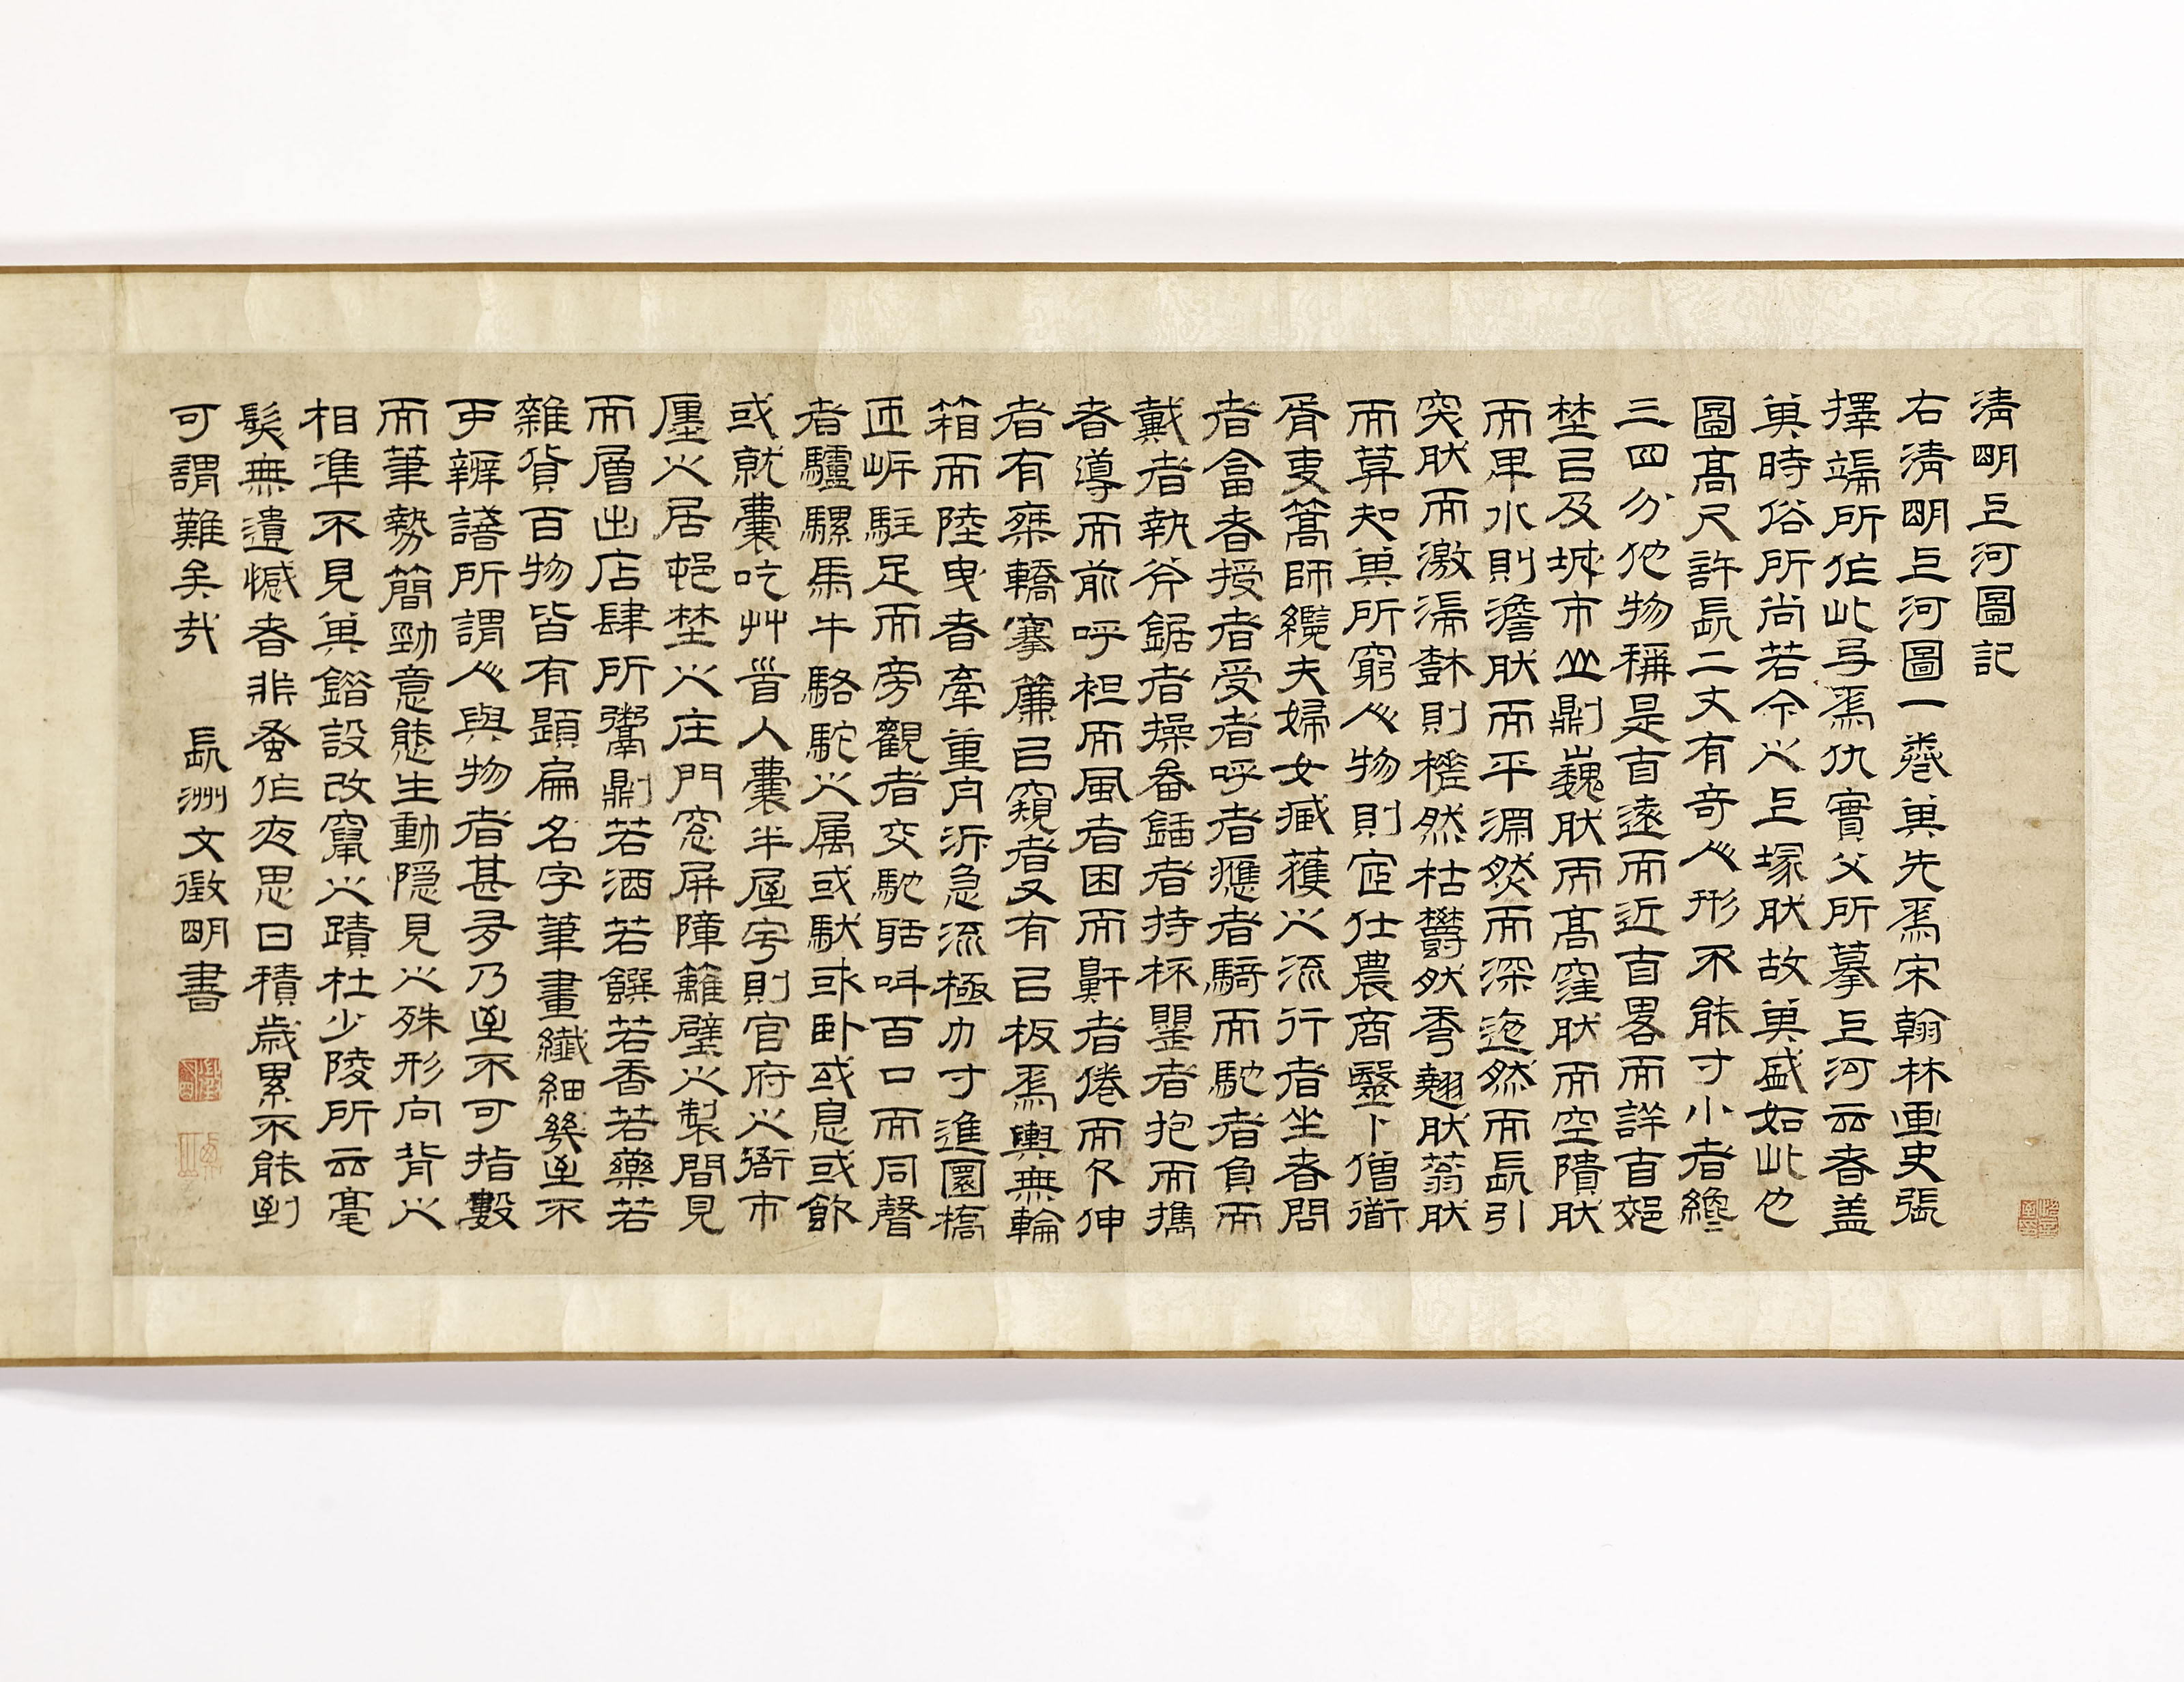 清明上河圖記
右清明上河圖一卷其先為宋翰林画史張
擇端所作此再為仇實父所摹上河云者盖
其時俗所尚若今之上塚肰故其盛如此也
圖髙尺許長二丈有奇人形不能寸小者纔
三四分他物稱是自遠而近自畧而詳自郊
埜㠯及城市山則巍肰而髙窪肰而空隤肰
而卑水則澹肰而平淵然而深迤然而長引
突肰而激湍樹則槎然枯欝然秀翹肰蓊肰
而莫知其所窮人物則官仕農商醫卜僧道
胥吏篙師纜夫婦女臧獲之流行者坐者問
者畣者授者受者呼者應者騎而馳者負而
戴者執斧鋸者操畚鍤者持杯罌者抱而擕
者導而前呼袒而風者困而鼾者倦而欠伸
者有乗轎搴簾㠯窺者又有㠯板為輿無輪
箱而陸曳者牽重舟泝急流極力寸進圜橋
匝岸駐足而旁觀者交馳聒呌百口而同聲
者驢騾馬牛駱駝之属或馱或卧或息或飲
或就囊吃艸首入囊半屋宇則官府之衙市
廛之居邨埜之庄門窓屏障籬壁之製間見
而層出店肆所鬻則若酒若饌若香若藥若
雜貨百物皆有題扁名字筆畫纖細幾至不
可辨識所謂人與物者甚多乃至不可指數
而筆勢簡勁意態生動隠見之殊形向背之
相準不見其錯設改竄之蹟杜少陵所云毫
髮無遺憾者非蚤作夜思日積歲累不能到
可謂難矣哉
長洲文徵明書